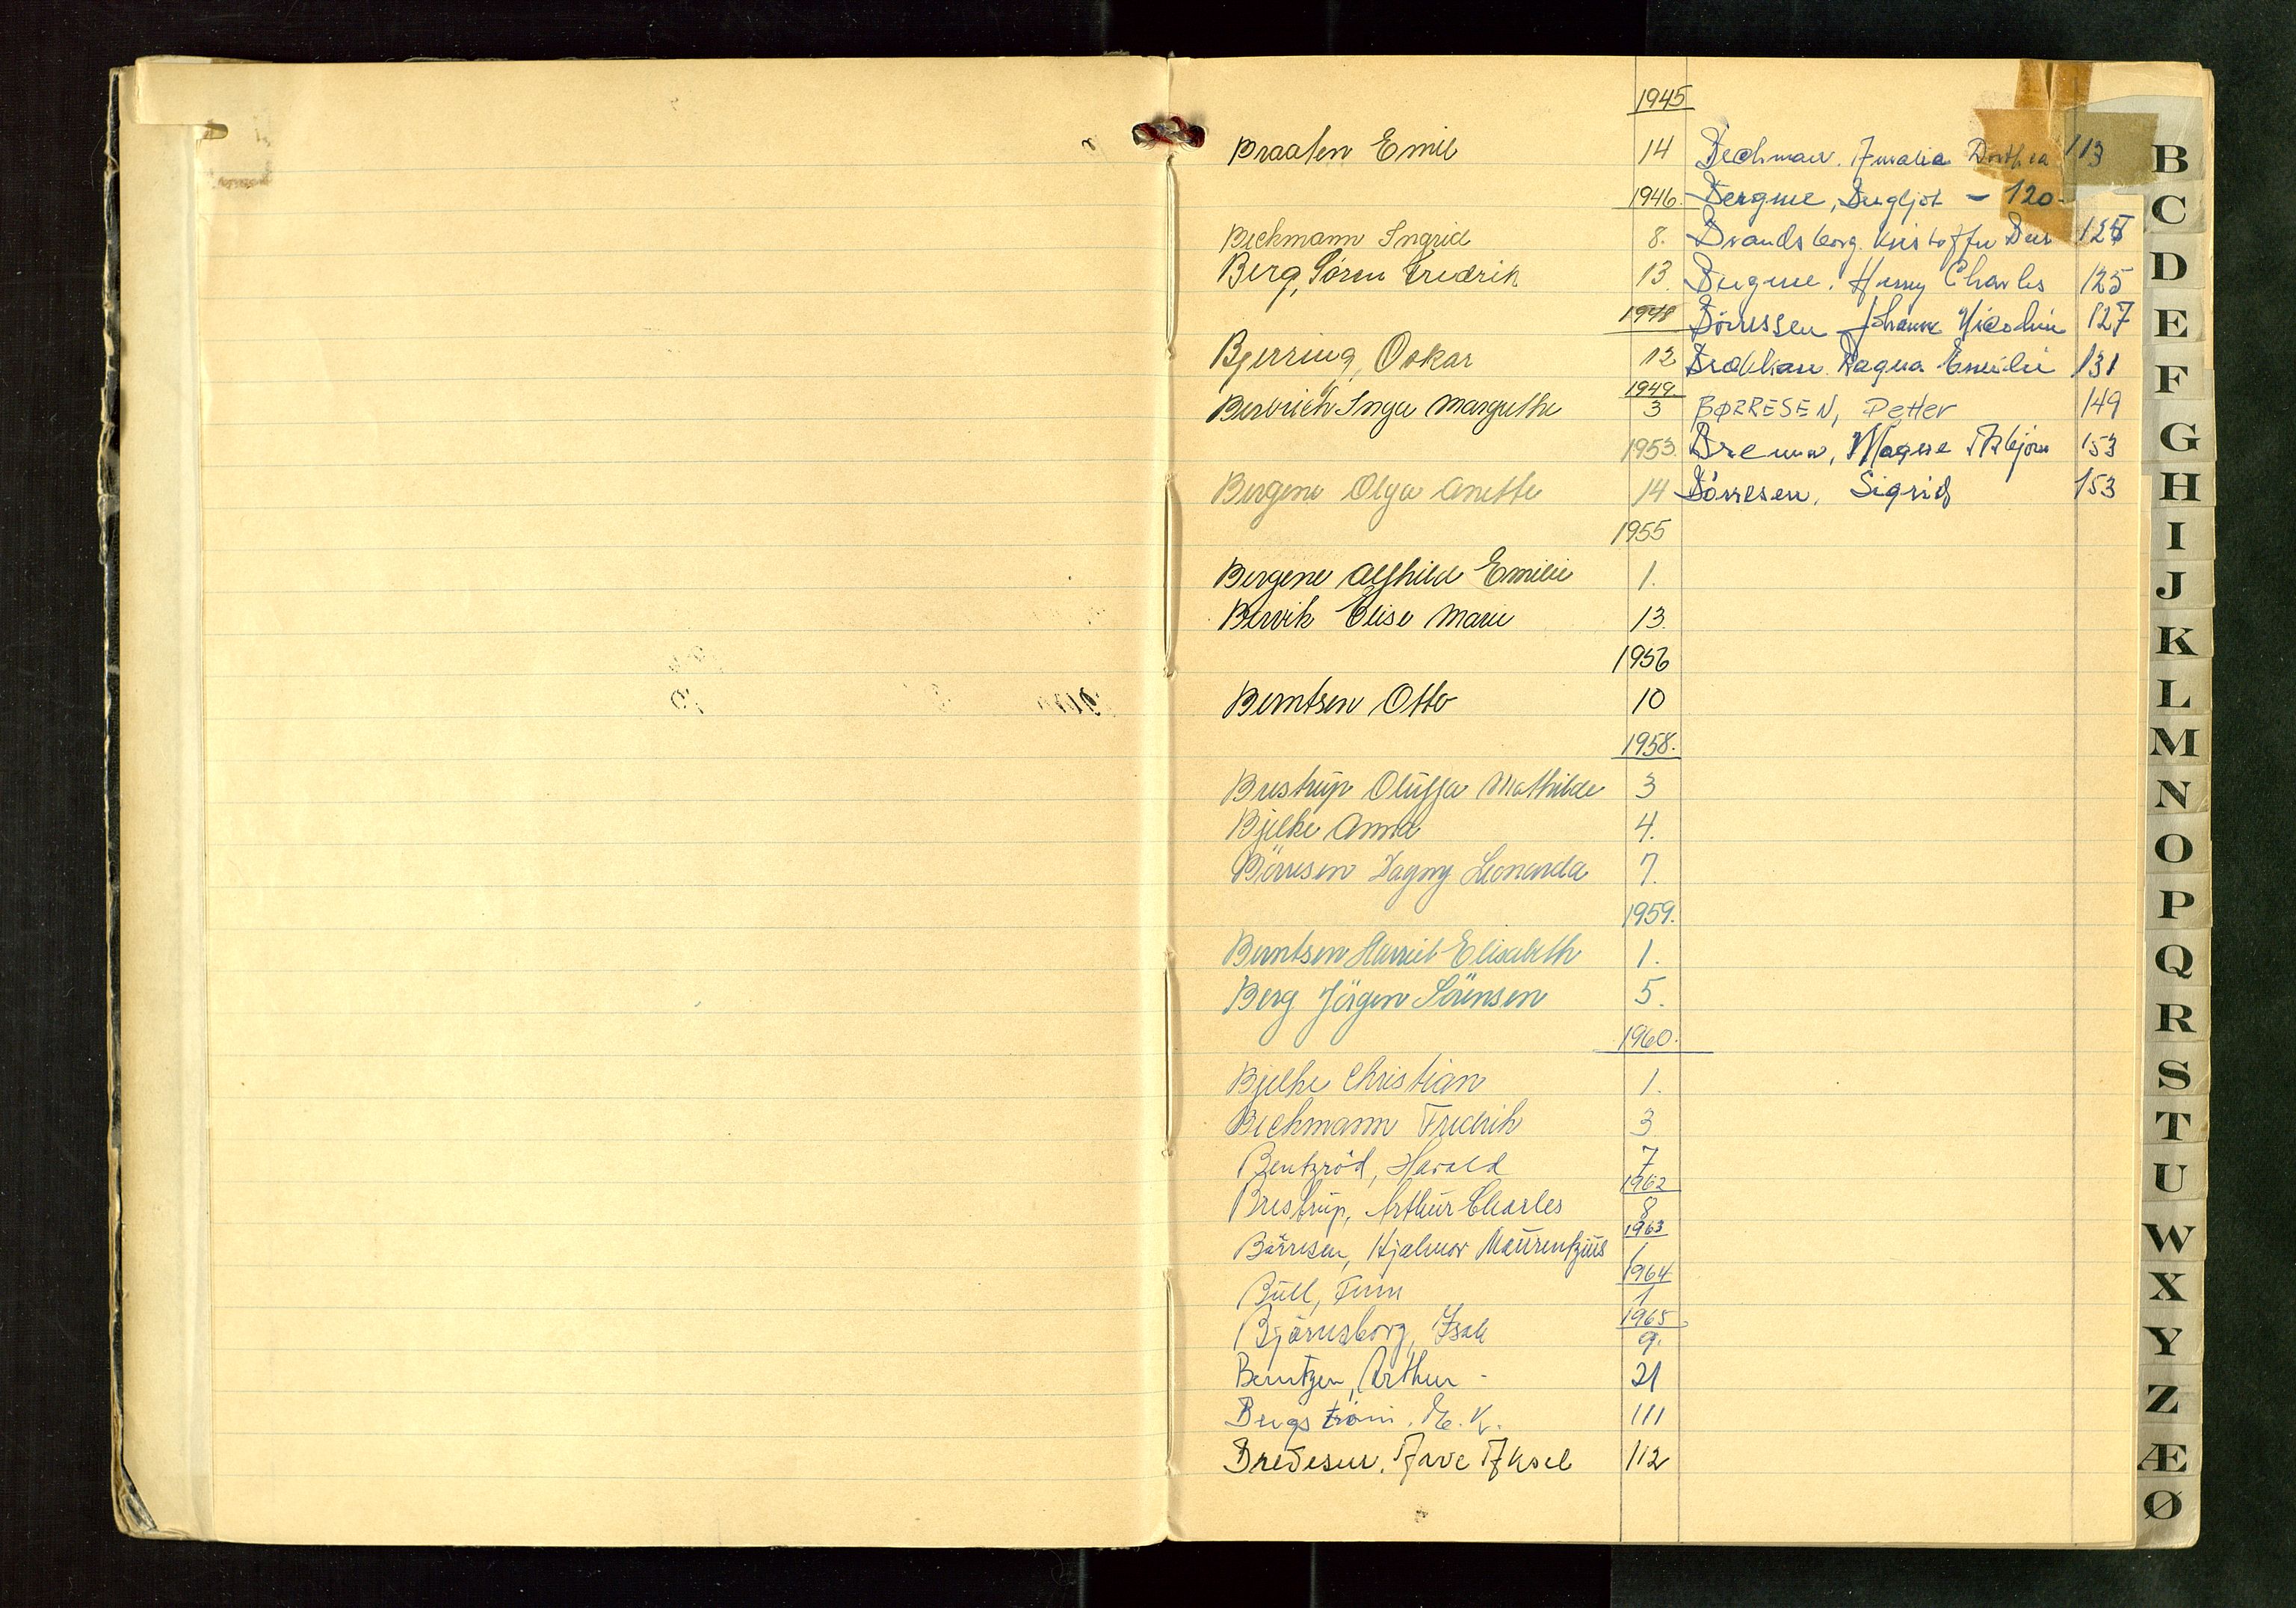 1945
Braaten Emil 14
1946.
Beckmann Ingrid 8.
Berg, Sören Fredrik 13.
1948
Bjerring, Oskar 12
1949.
Inga Margrethe 3
1953.
Bergene Olga Anette 14
1955
Bergene Alfhild Emilie 1.
Bervik Elise Marie 13.
1956
Berntsen Otto 10
1958.
Brestrup Oluffa Mathilde 3
Bjelke Anna 4.
Börresen Dagny Leonarda 7.
1959.
Berntsen Harriet Elisabeth 1.
Berg Jörgen Sörensen 5.
1960.
Bjelke Christian 1.
Beckmann Fredrik 3
Bentzröd, Harald 7
1962
Brestrup, Arthur Charles 8
1963
Börresen, Hjalmar Maurentzius 1
1964
Bull, Finn 1
1965
Björnsborg, Isak 9.
Berntzen, Arthur - 21
Bergström. 111
Bredesen. Aksel 112
Bechman. Amalia Dorthea 113
Bergene, Bergljot - 120-
Brandsborg. Kristoffer
Bergene. Henny Charles 125
Börressen 127
Ragna Emilie 131
BØRRESEN, Petter 149
Magne Asbjörn 153
Börresen, Sigrid 153
B
C
D
E
F
G
H
I
J
K
L
M
N
O
P
Q
R
S
T
U
W
X
Y
Z
Æ
Ø